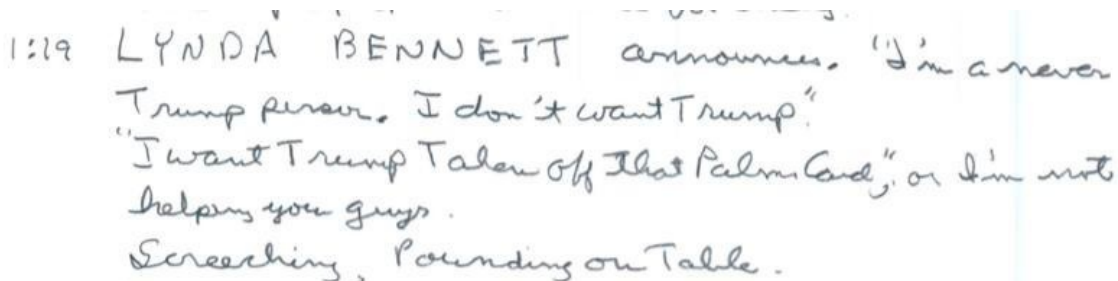 1:19 LYNDA BENNETT announces. "I'm a never
Trump person. I don't want Trump".
"I want Trump Taken off that Palm Card", or I'm not
helping you guys.
Screeching, Pounding on Table.